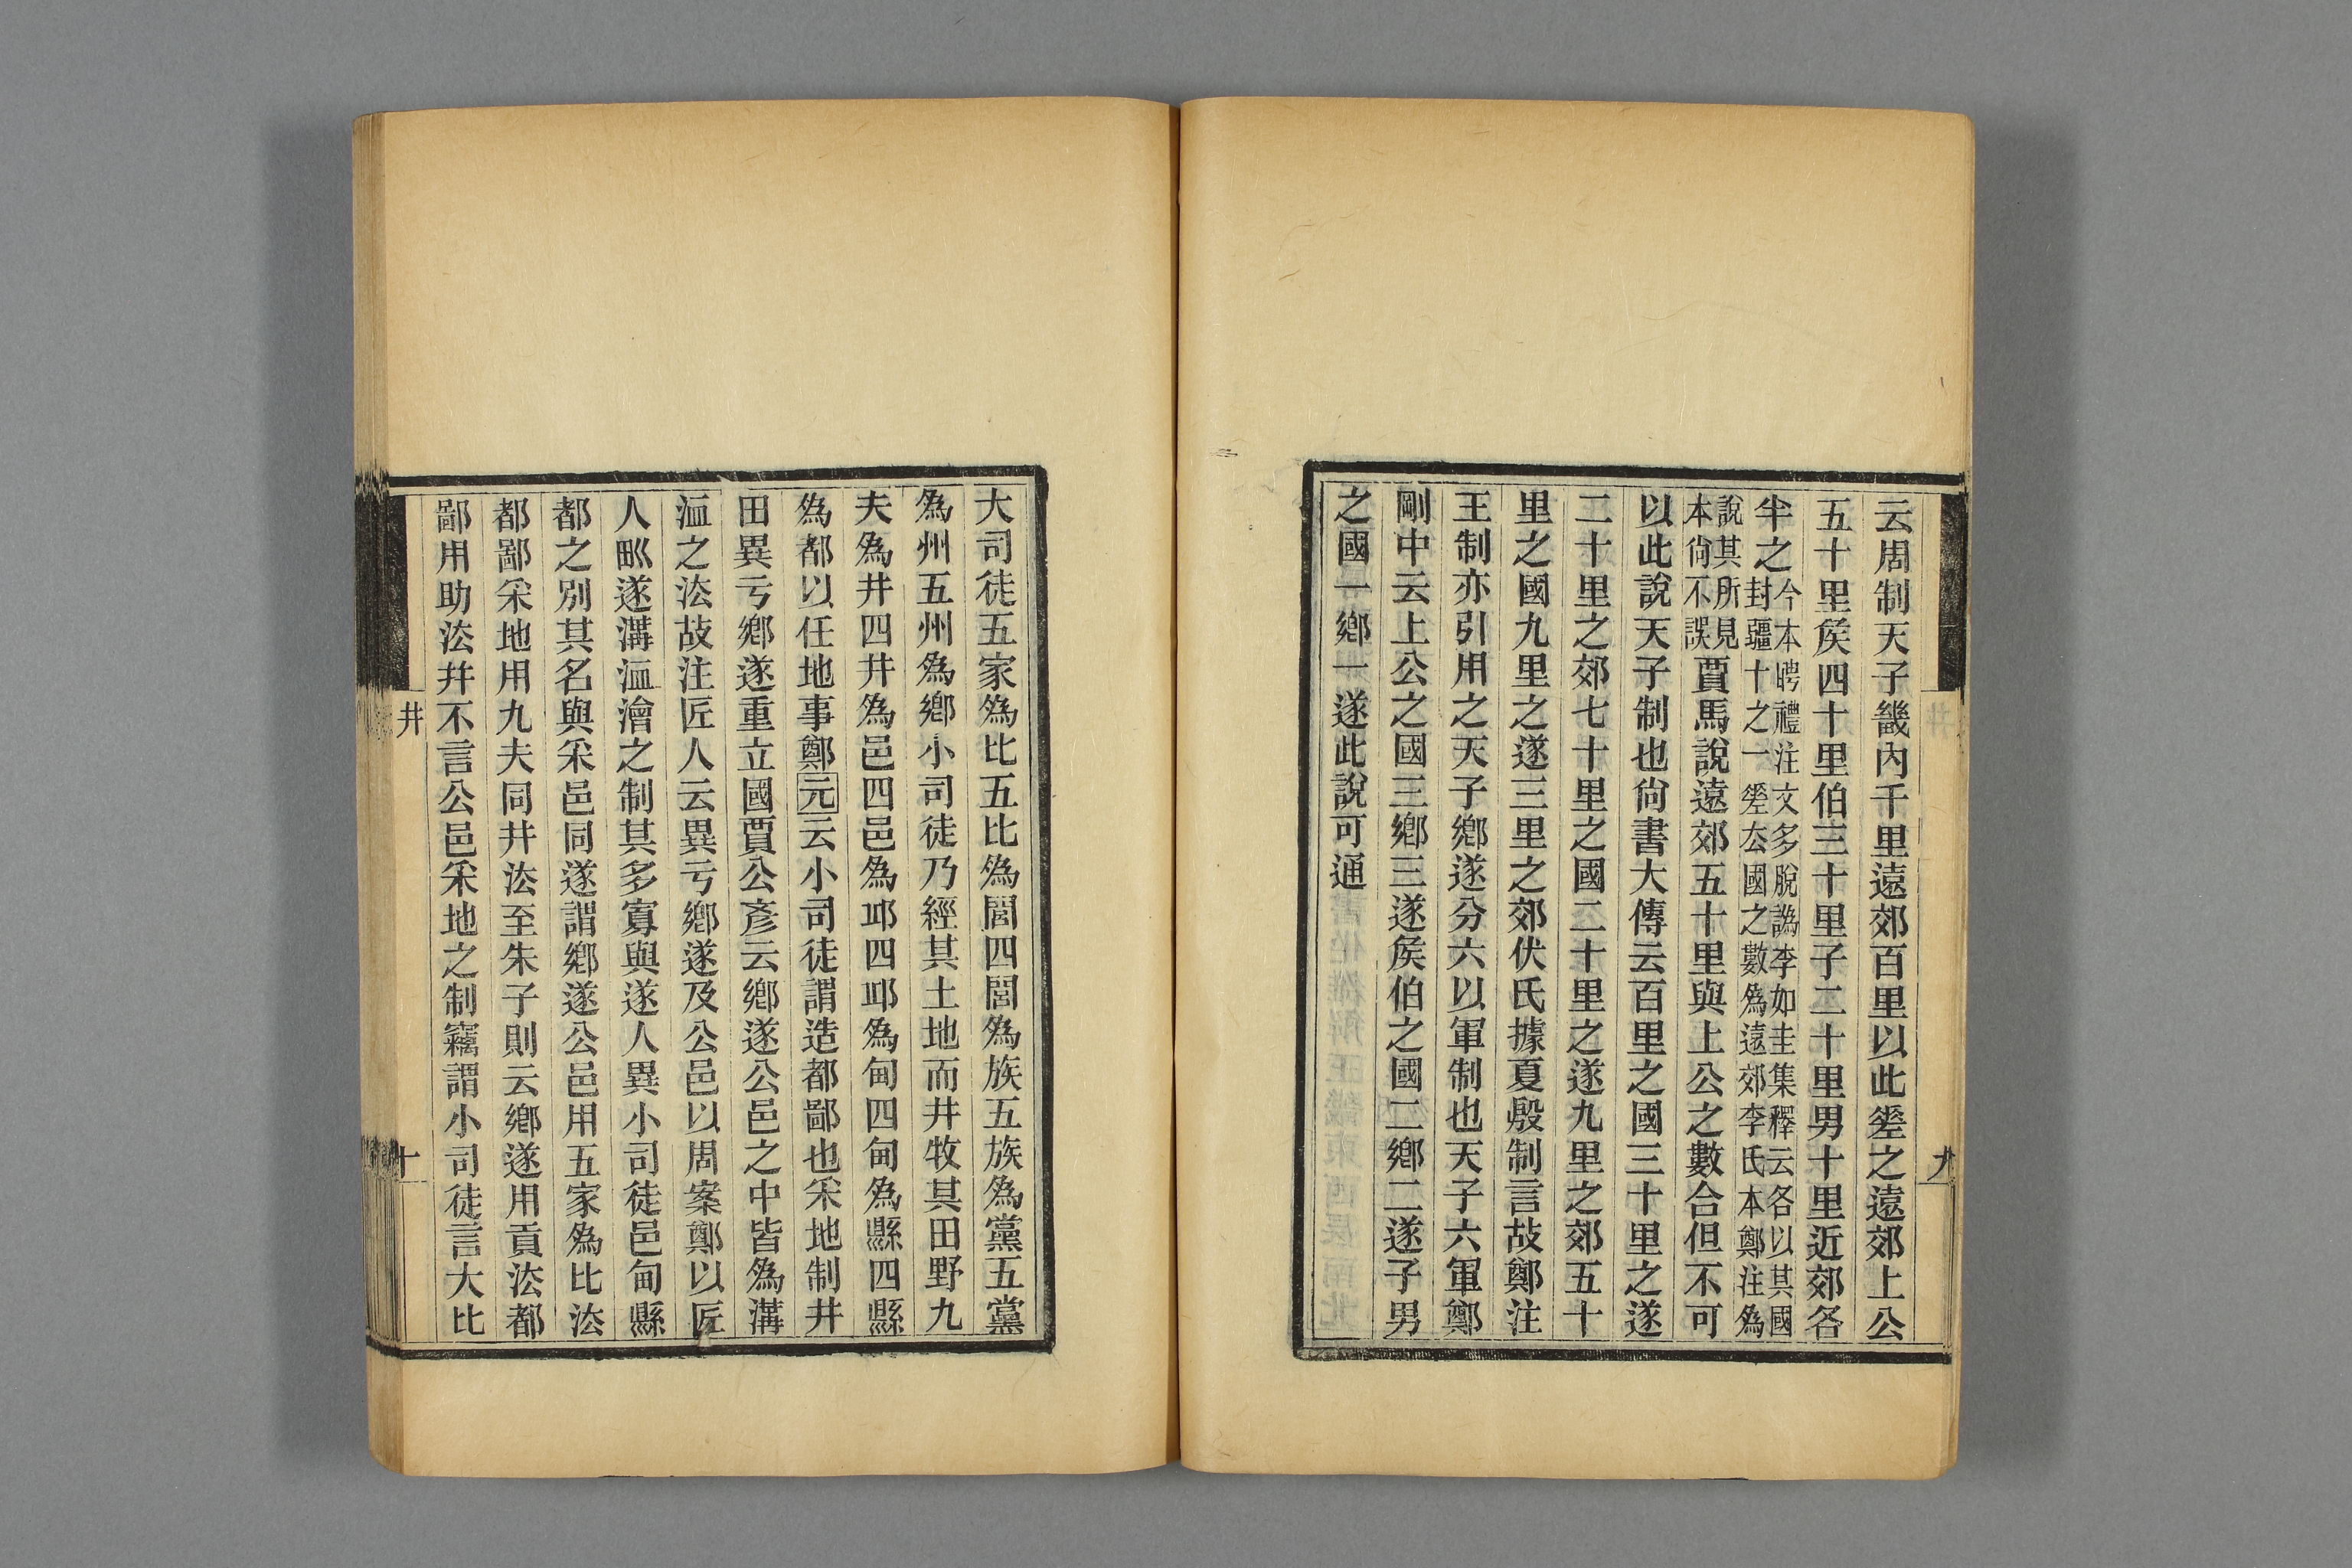 云周制天子畿內千里遠郊百里以此𢀩之遠郊上公
五十里矦四十里伯三十里子二十里男十里近郊各
半之今本聘禮注文多脫譌李如圭集釋云各以其國
封疆十之一𢀩厺國之數爲遠郊李氏本鄭注爲
說其所見
本尙不誤賈馬說遠郊五十里與上公之數合但不可
以此說天子制也尙書大傳云百里之國三十里之遂
二十里之郊七十里之國二十里之遂九里之郊五十
里之國九里之遂三里之郊伏氏據夏殷制言故鄭注
王制亦引用之天子鄉遂分六以軍制也天子六軍鄭
剛中云上公之國三鄉三遂矦伯之國二鄉二遂子男
之國一鄉一遂此說可通
九
大司徒五家爲比五比爲閭四閭爲族五族爲黨五黨
爲州五州爲鄉小司徒乃經其土地而井牧其田野九
夫爲井四井爲邑四邑爲邱四邱爲甸四甸爲縣四縣
爲都以任地事鄭元云小司徒謂造都鄙也采地制井
田異亏鄉遂重立國賈公彥云鄉遂公邑之中皆爲溝
洫之法故注匠人云異亏鄉遂及公邑以周案鄭以匠
人𤰕遂溝洫澮之制其多寡與遂人異小司徒邑甸縣
都之別其名與采邑同遂謂鄉遂公邑用五家爲比法
都鄙采地用九夫同井法至朱子則云鄉遂用貢法都
鄙用助法幷不言公邑采地之制竊謂小司徒言大比
井
十